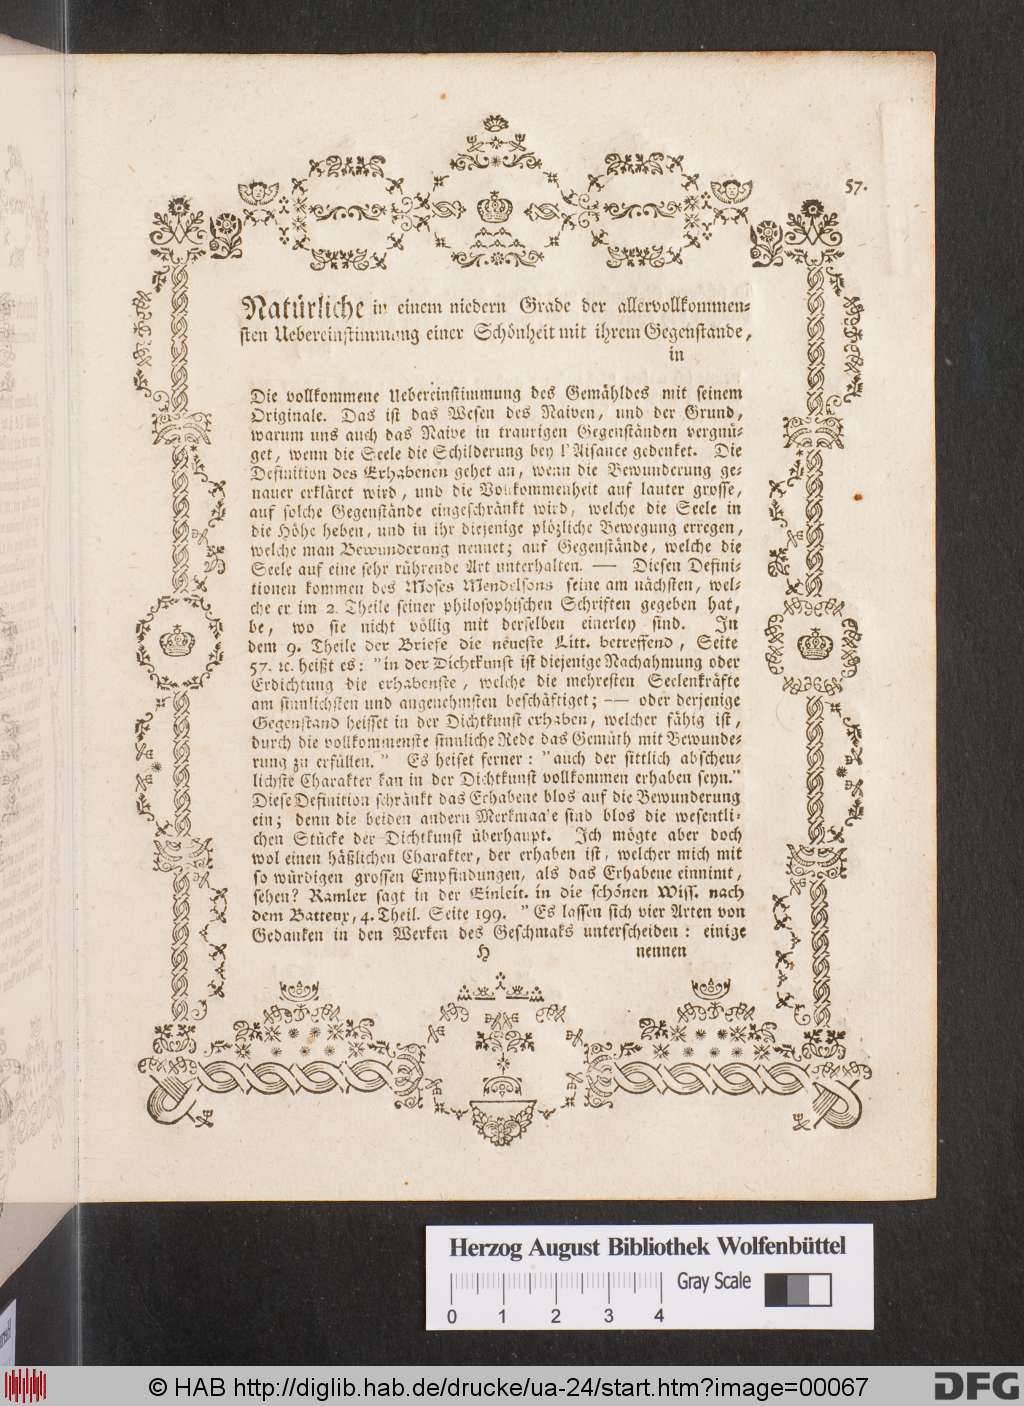 57.
Natürliche in einem niedern Grade der allervollkommen-
sten Uebereinstimmung einer Schönheit mit ihrem Gegenstande,
in
Die vollkommene Uebereinstimmung des Gemähldes mit seinem
Originale. Das ist das Wesen des Naiven, und der Grund,
warum uns auch das Naive in traurigen Gegenständen vergnü-
get, wenn die Seele die Schilderung bey l'Aisance gedenket. Die
Definition des Erhabenen gehet an, wenn die Bewunderung ge-
nauer erkläret wird, und die Vollkommenheit auf lauter grosse,
auf solche Gegenstände eingeschränkt wird, welche die Seele in
die Höhe heben, und in ihr diejenige plözliche Bewegung erregen,
welche man Bewunderung nennet; auf Gegenstände, welche die
Seele auf eine sehr rührende Art unterhalten. — Diesen Defini-
tionen kommen des Moses Mendelsons seine am nächsten, wel-
che er im 2. Theile seiner philosophischen Schriften gegeben hat,
be, wo sie nicht völlig mit derselben einerley sind. In
dem 9. Theile der Briefe die neueste Litt. betreffend, Seite
57. ꝛc. heißt es: "in der Dichtkunst ist diejenige Nachahmung oder
Erdichtung die erhabenste, welche die mehresten Seelenkräfte
am sinnlichsten und angenehmsten beschäftiget; — oder derjenige
Gegenstand heisset in der Dichtkunst erhaben, welcher fähig ist,
durch die vollkommenste sinnliche Rede das Gemüth mit Bewunde-
rung zu erfüllen." Es heiset ferner: "auch der sittlich abscheu-
lichste Charakter kan in der Dichtkunst vollkommen erhaben seyn."
Diese Definition schränkt das Erhabene blos auf die Bewunderung
ein; denn die beiden andern Merkmaa'e sind blos die wesentli-
chen Stücke der Dichtkunst überhaupt. Ich mögte aber doch
wol einen häßlichen Charakter, der erhaben ist, welcher mich mit
so würdigen grossen Empfindungen, als das Erhabene einnimt,
sehen? Ramler sagt in der Einleit. in die schönen Wiss. nach
dem Batteux, 4. Theil. Seite 199. "Es lassen sich vier Arten von
Gedanken in den Werken des Geschmaks unterscheiden: einige
H nennen
Herzog August Bibliothek Wolfenbüttel
Gray Scale
0 1 2 3 4
© HAB http://diglib.hab.de/drucke/ua-24/start.htm?image=00067
DFG